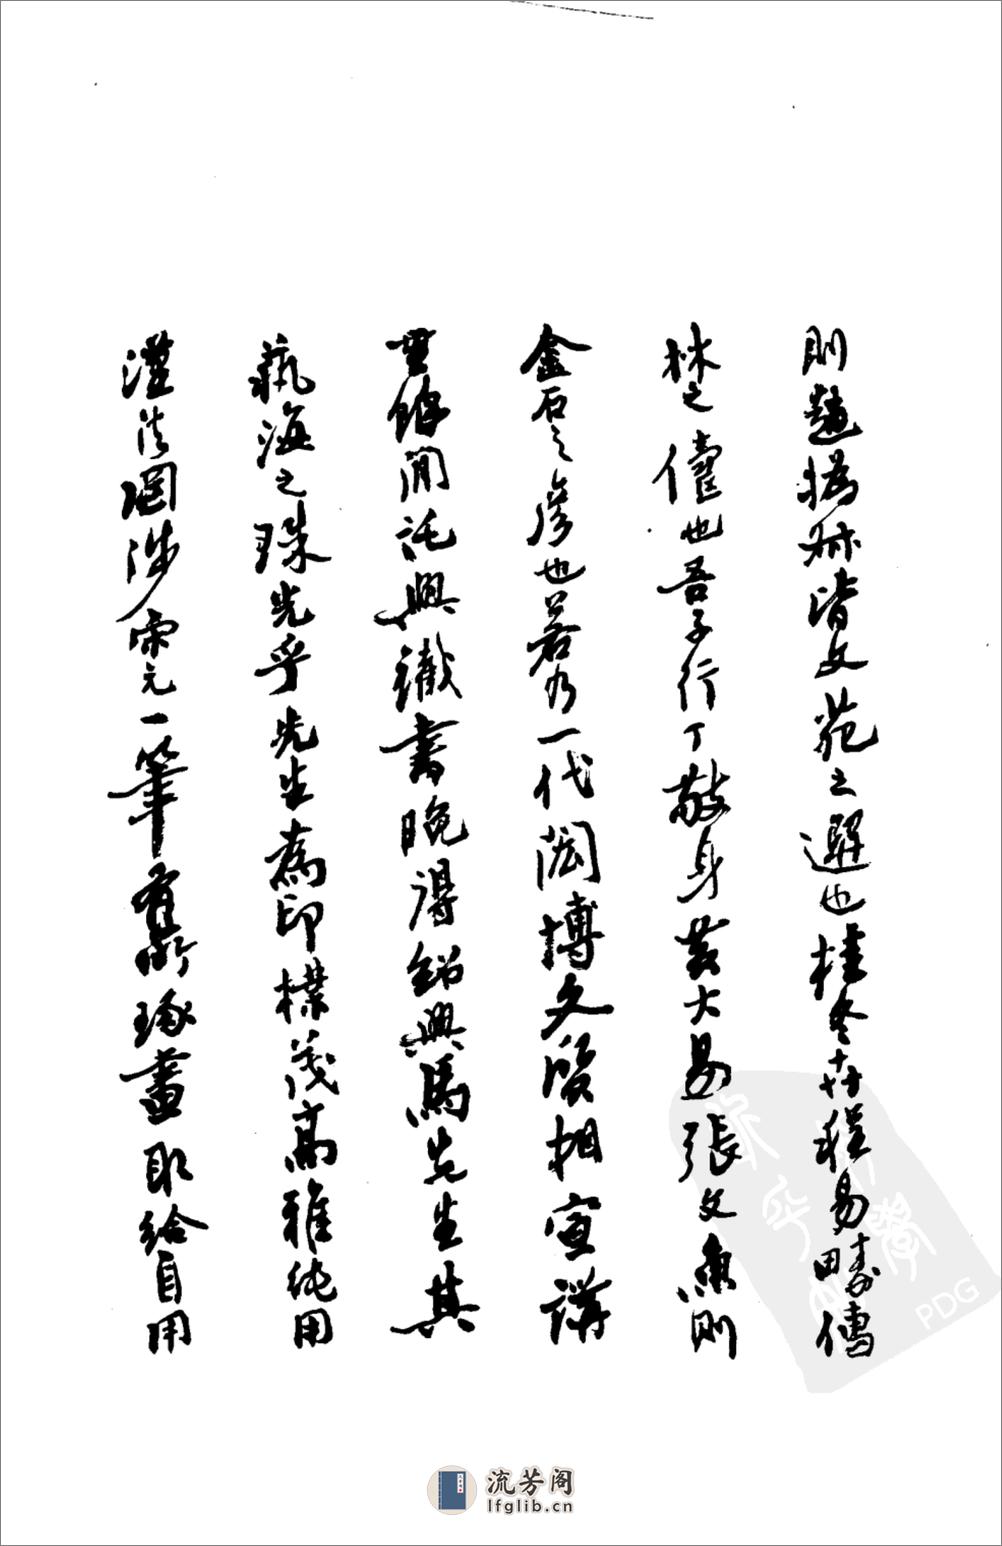 則趙撝叔皆文苑之選也桂冬卉程易疇儒
林之儔也吾子行丁敬身黃大易張文魚則
金石之彥也若乃一代閎博久殷相宣講
習餘閒託興鐵書晚得紹興馬先生其
藝海之珠光乎先生為印樸茂高雅純用
漢法間涉宋元一筆有斷琢畫取給自用
流芳阁
lfglib.cn
PDG